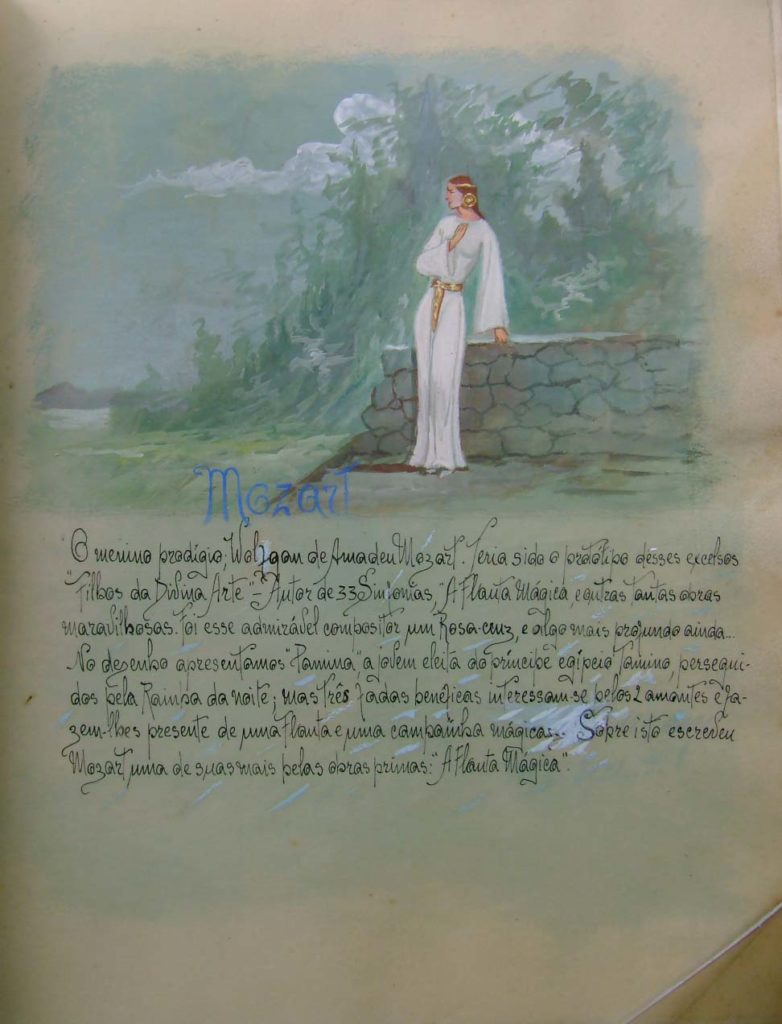 Mozart
O menino prodigio, Wolfgan de Amadeu Mozart. Teria sido o protótipo desses excelsos
"Filhos da Divina Arte" - Autor de 33 Sinfonias, "A Flauta Mágica, e outras tantas obras
maravilhosas. Foi esse admirável compositor, um Rosa-cruz, e algo mais profundo ainda...
No desenho apresentamos "Pamina", a jovem eleita do príncipe egípcio Tamino, persegui-
dos pela Rainha da noite; mas três fadas benéficas interessam-se pelos 2 amantes e fa-
zem-lhes presente de uma flauta e uma campainha mágicas. Sobre isto escreveu
Mozart uma de suas mais belas obras primas: "A Flauta Mágica".